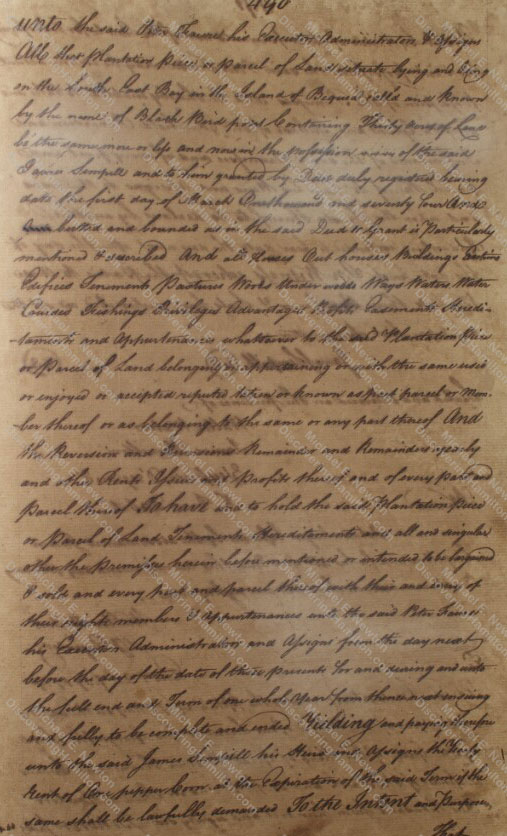 490
unto the said Peter Fairer his Executors Administrators & Assigns
All that Plantation piece or parcel of Land situate lying and being
on the South East Bay in the Island of Bequia called and known
by the name of Black Boid point Containing Thirty Acres of Land
be the same more or less and now in the possession of the said
James Sempill and to him granted by Deed duly registered bearing
date the first day of March One thousand and seventy four And
butted and bounded as in the said Deed or Grant is Particularly
mentioned & described And all Houses Out houses Buildings
Edifices Tenements Pastures Works Under woods Ways Waters Water
Courses Fishings Privileges Advantages Profits Easements Heredi-
taments and Appurtenances whatsoever to the said Plantation piece
or Parcel of Land belonging or appertaining or with the same used
or enjoyed or accepted reputed taken or known as part parcel or Mem-
ber thereof or as belonging to the same or any part thereof And
the Reversion and Reversions Remainder and Remainders yearly
and other Rents Issues and Profits thereof and of every part and
parcel thereof To have and to hold the said Plantation piece
or Parcel of Land Tenements Hereditaments and all and singular
other the Premises herein before mentioned or intended to be bargained
& sold and every part and parcel thereof with their and every of
their rights members & appurtenances unto the said Peter Fairer
his Executors Administrators and Assigns from the day next
before the day of the date of these presents for and during and unto
the full end and Term of one whole Year from thence next ensuing
and fully to be complete and ended Yielding and paying therefore
unto the said James Sempill his Heirs and Assigns the Yearly
Rent of One pepper Corn at the Expiration of the said Term if the
same shall be lawfully demanded To the Intent and Purpose,
That